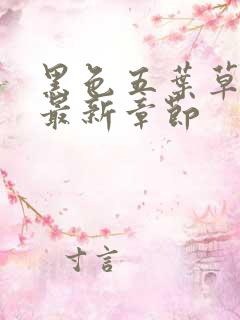 黑色五葉草
最新章節
寸言